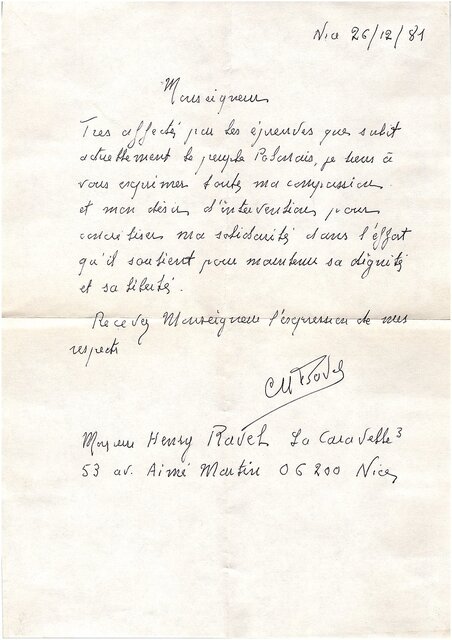 Nice 26/12/81
Monseigneur
Très affecté par les épreuves que subit
actuellement le peuple Polonais, je tiens à
vous exprimer toute ma compassion
et mon désir d'intervention pour
concrétiser ma solidarité dans l'effort
qu'il soutient pour maintenir sa dignité
et sa liberté.
Recevez Monseigneur l'expression de mes
respects
Henry Ravel La Caravelle 3
53 av. Aimé Martin 06200 Nice